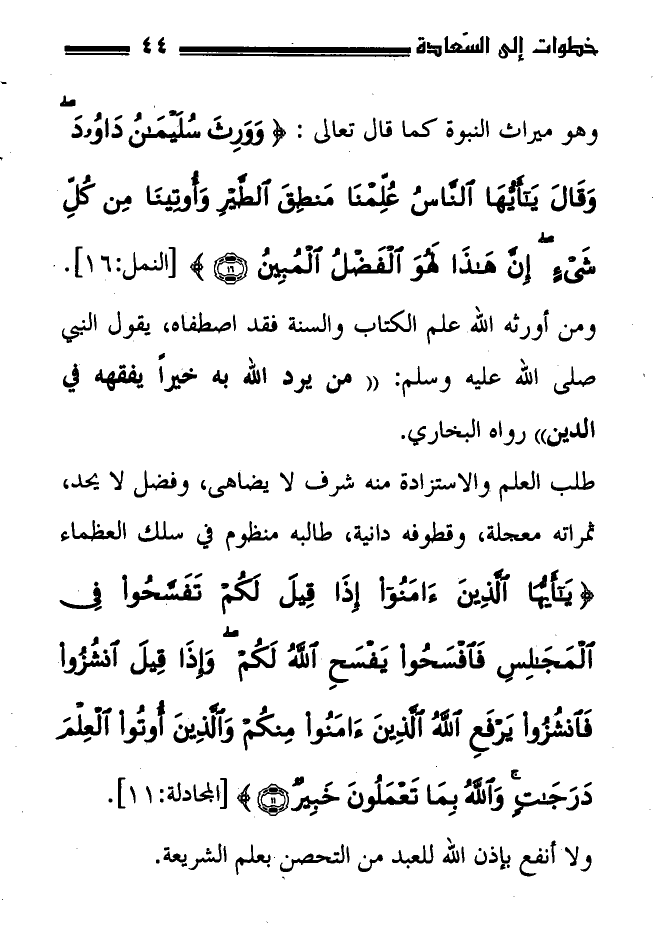 خطوات إلى السعادة ٤٤
وهو ميراث النبوة كما قال تعالى : ﴿ وَوَرِثَ سُلَيْمَٰنُ دَاوُۥدَ ۖ
وَقَالَ يَٰٓأَيُّهَا ٱلنَّاسُ عُلِّمْنَا مَنطِقَ ٱلطَّيْرِ وَأُوتِينَا مِن كُلِّ
شَىْءٍ ۖ إِنَّ هَٰذَا لَهُوَ ٱلْفَضْلُ ٱلْمُبِينُ ۝١٦ ﴾ [النمل:١٦].
ومن أورثه الله علم الكتاب والسنة فقد اصطفاه، يقول النبي
صلى الله عليه وسلم: (( من يرد الله به خيراً يفقهه في
الدين)) رواه البخاري.
طلب العلم والاستزادة منه شرف لا يضاهى، وفضل لا يحد،
ثمراته معجلة، وقطوفه دانية، طالبه منظوم في سلك العظماء
﴿ يَٰٓأَيُّهَا ٱلَّذِينَ ءَامَنُوٓا۟ إِذَا قِيلَ لَكُمْ تَفَسَّحُوا۟ فِى
ٱلْمَجَٰلِسِ فَٱفْسَحُوا۟ يَفْسَحِ ٱللَّهُ لَكُمْ ۖ وَإِذَا قِيلَ ٱنشُزُوا۟
فَٱنشُزُوا۟ يَرْفَعِ ٱللَّهُ ٱلَّذِينَ ءَامَنُوا۟ مِنكُمْ وَٱلَّذِينَ أُوتُوا۟ ٱلْعِلْمَ
دَرَجَٰتٍ ۚ وَٱللَّهُ بِمَا تَعْمَلُونَ خَبِيرٌ ۝١١ ﴾ [المجادلة:١١].
ولا أنفع بإذن الله للعبد من التحصن بعلم الشريعة.